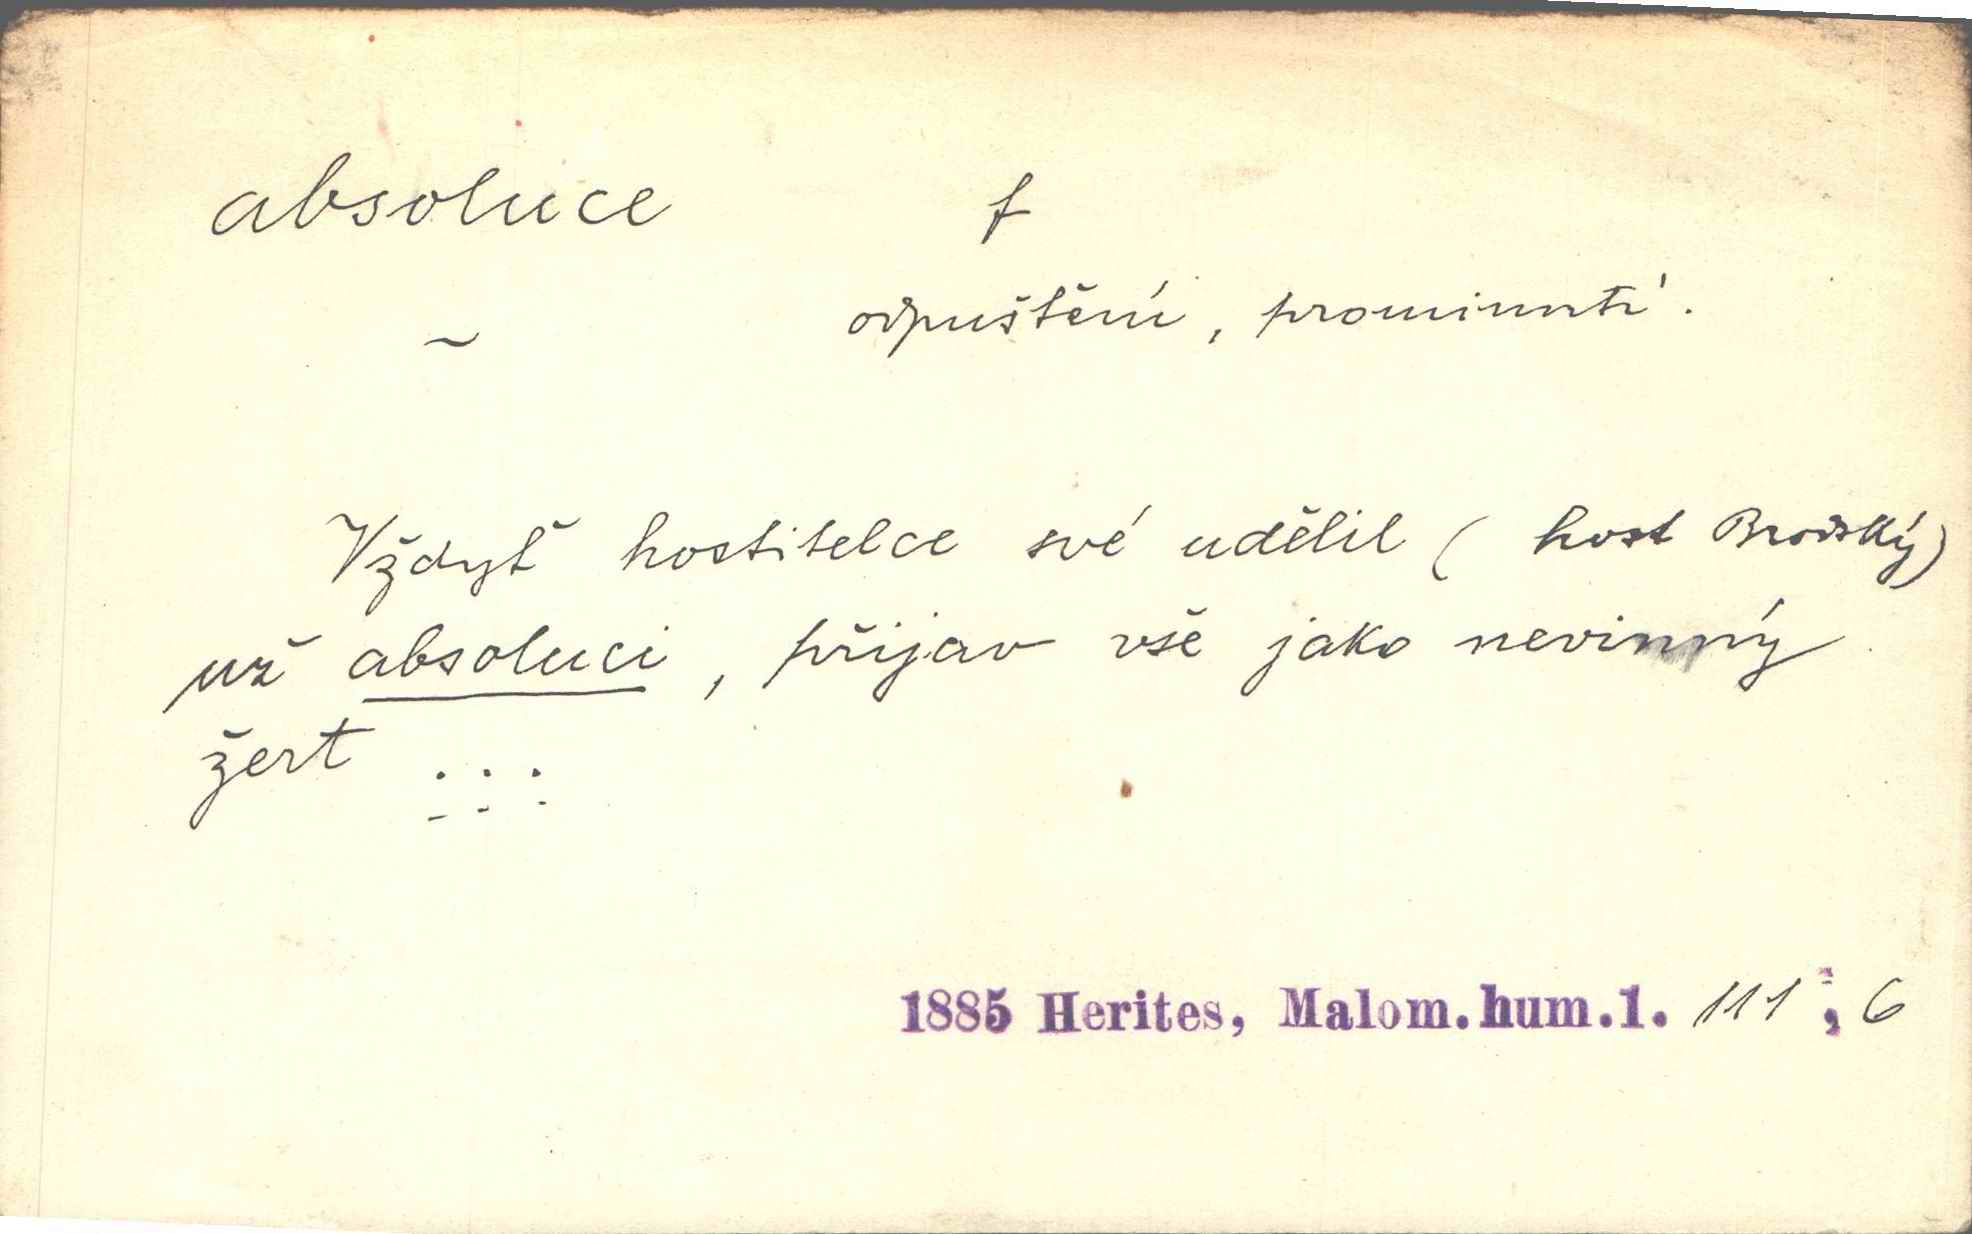 absoluce f
~ odpuštění, prominutí.
Vždyť hostitelce své udělil (host Brodský)
už absoluci, přijav vše jako nevinný
žert ...
1885 Herites, Malom.hum.1. 111, 6